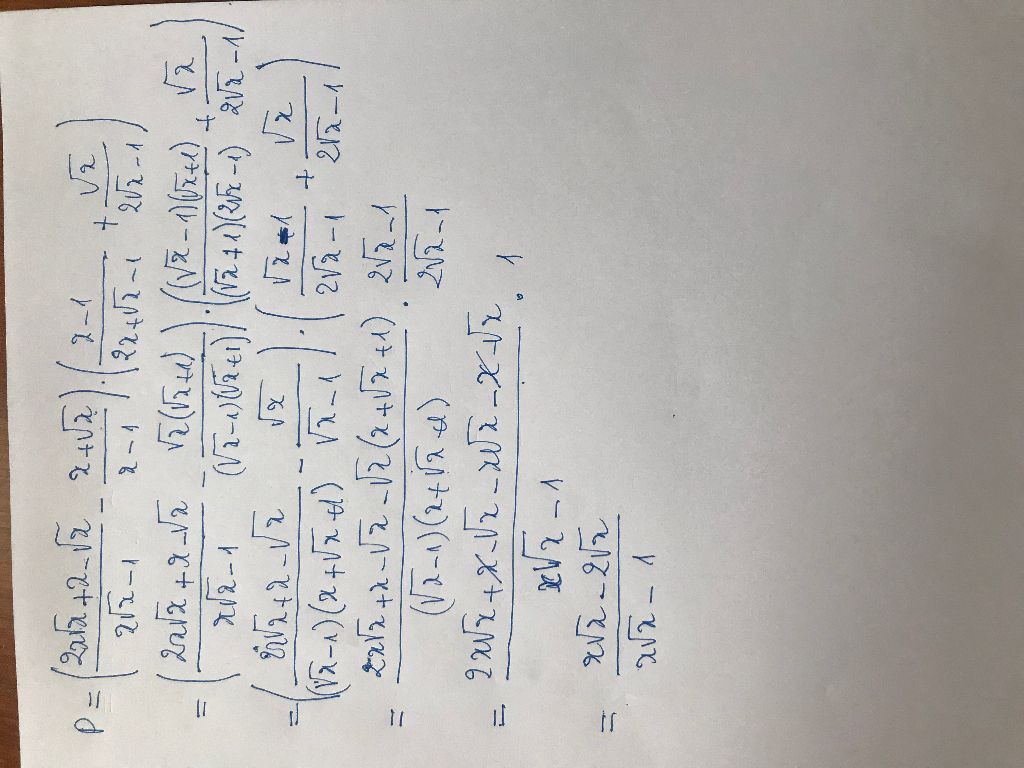 P = ((2x√x + x - √x)/(x√x - 1) - (x + √x)/(x - 1)) . ((x - 1)/(2x + √x - 1) + √x/(2√x - 1))
= ((2x√x + x - √x)/(x√x - 1) - √x(√x + 1)/((√x - 1)(√x + 1))) . ((√x - 1)(√x + 1)/((√x + 1)(2√x - 1)) + √x/(2√x - 1))
= ((2x√x + x - √x)/((√x - 1)(x + √x + 1)) - √x/(√x - 1)) . ((√x - 1)/(2√x - 1) + √x/(2√x - 1))
= (2x√x + x - √x - √x(x + √x + 1))/((√x - 1)(x + √x + 1)) . (2√x - 1)/(2√x - 1)
= (2x√x + x - √x - x√x - x - √x)/(x√x - 1) . 1
= (x√x - 2√x)/(x√x - 1)